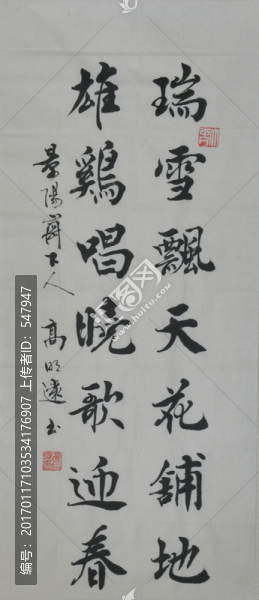 瑞雪飄天花舖地
雄鷄唱曉歌迎春
景陽齋主人 高明遠书
编号：20170117103534176907 上传者ID：547947